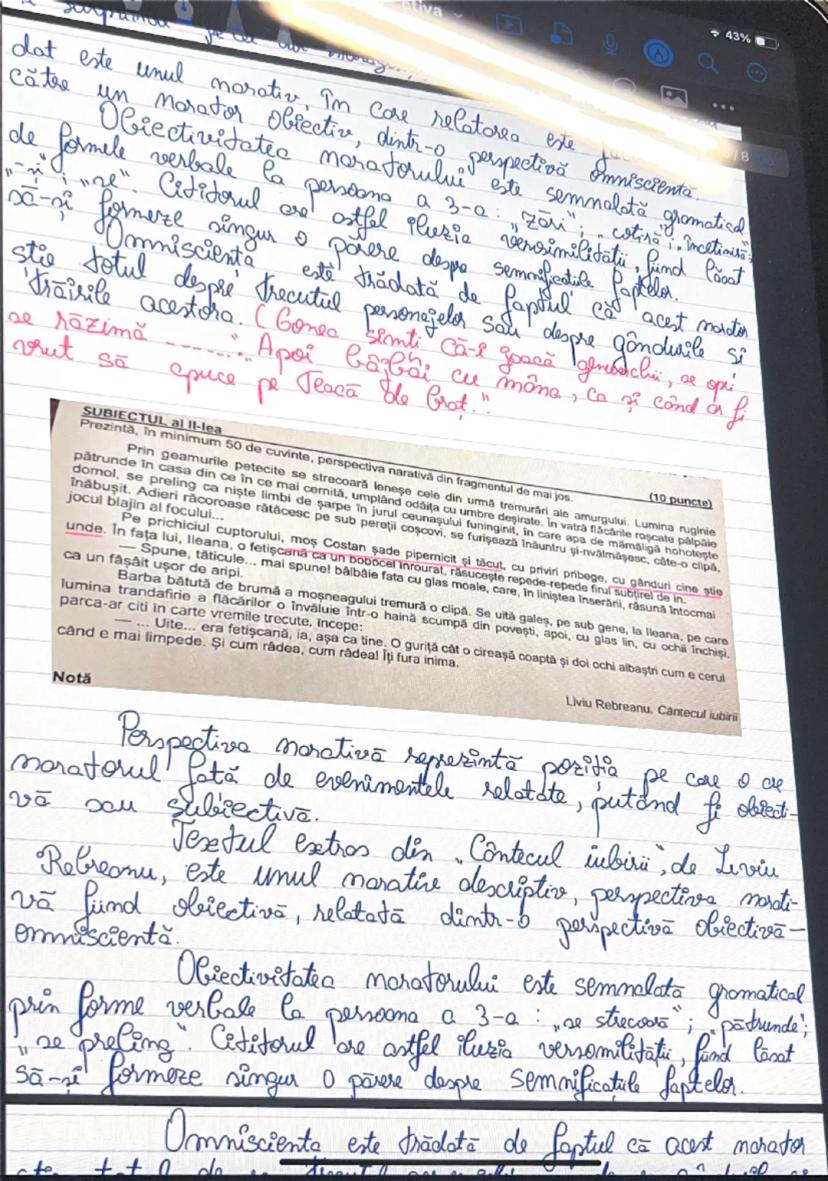 43%
dat este unul narativ, în care relatarea este
către un narator obiectiv, dintr-o perspectivă omniscientă.
Obiectivitatea naratorului este semnalată gramatical
de formele verbale la persoana a 3-a: „zări”; „cotiră”; „încetiniră”;
„-și”; „se”. Cititorul are astfel iluzia verosimilității, fiind lăsat
să-și formeze singur o părere despre semnificațiile faptelor.
Omnisciența este trădată de faptul că acest narator
știe totul despre trecutul personajelor sau despre gândurile și
trăirile acestora. (Gonea simți că-i joacă genunchii, se opri
se răzimă ........ „Apoi bâlbâi cu mâna, ca și când ar fi
vrut să apuce pe Teacă de braț.”
SUBIECTUL al II-lea
(10 puncte)
Prezintă, în minimum 50 de cuvinte, perspectiva narativă din fragmentul de mai jos.
Prin geamurile petecite se strecoară leneșe cele din urmă tremurări ale amurgului. Lumina ruginie
pătrunde în casa din ce în ce mai cernită, umplând odăița cu umbre deșirate. În vatră flăcările roșcate pâlpâie
domol, se preling ca niște limbi de șarpe în jurul ceunașului funinginit, în care apa de mămăligă hohotește
înăbușit. Adieri răcoroase rătăcesc pe sub pereții coșcovi, se furișează înăuntru și-nvălmășesc, câte-o clipă,
jocul blajin al focului...
Pe prichiciul cuptorului, moș Costan șade pipernicit și tăcut, cu priviri pribege, cu gânduri cine știe
unde. În fața lui, Ileana, o fetișcană ca un bobocel înrourat, răsucește repede-repede firul subțirel de in.
— Spune, tăticule... mai spune! bâlbâie fata cu glas moale, care, în liniștea înserării, răsună întocmai
ca un fâșâit ușor de aripi.
Barba bătută de brumă a moșneagului tremură o clipă. Se uită galeș, pe sub gene, la Ileana, pe care
lumina trandafirie a flăcărilor o învăluie într-o haină scumpă din povești, apoi, cu glas lin, cu ochii închiși,
parca-ar citi în carte vremile trecute, începe:
— ... Uite... era fetișcană, ia, așa ca tine. O guriță cât o cireașă coaptă și doi ochi albaștri cum e cerul
când e mai limpede. Și cum râdea, cum râdea! Îți fura inima.
Liviu Rebreanu, Cântecul iubirii
Notă
Perspectiva narativă reprezintă poziția pe care o are
naratorul față de evenimentele relatate, putând fi obiecti-
vă sau subiectivă.
Textul extras din „Cântecul iubirii”, de Liviu
Rebreanu, este unul narativ descriptiv, perspectiva narati-
vă fiind obiectivă, relatată dintr-o perspectivă obiectivă-
omniscientă.
Obiectivitatea naratorului este semnalată gramatical
prin forme verbale la persoana a 3-a: „se strecoară”; „pătrunde”;
„se preling”. Cititorul are astfel iluzia versomilității, fiind lăsat
să-și formeze singur o părere despre semnificațiile faptelor.
Omnisciența este trădată de faptul că acest narator